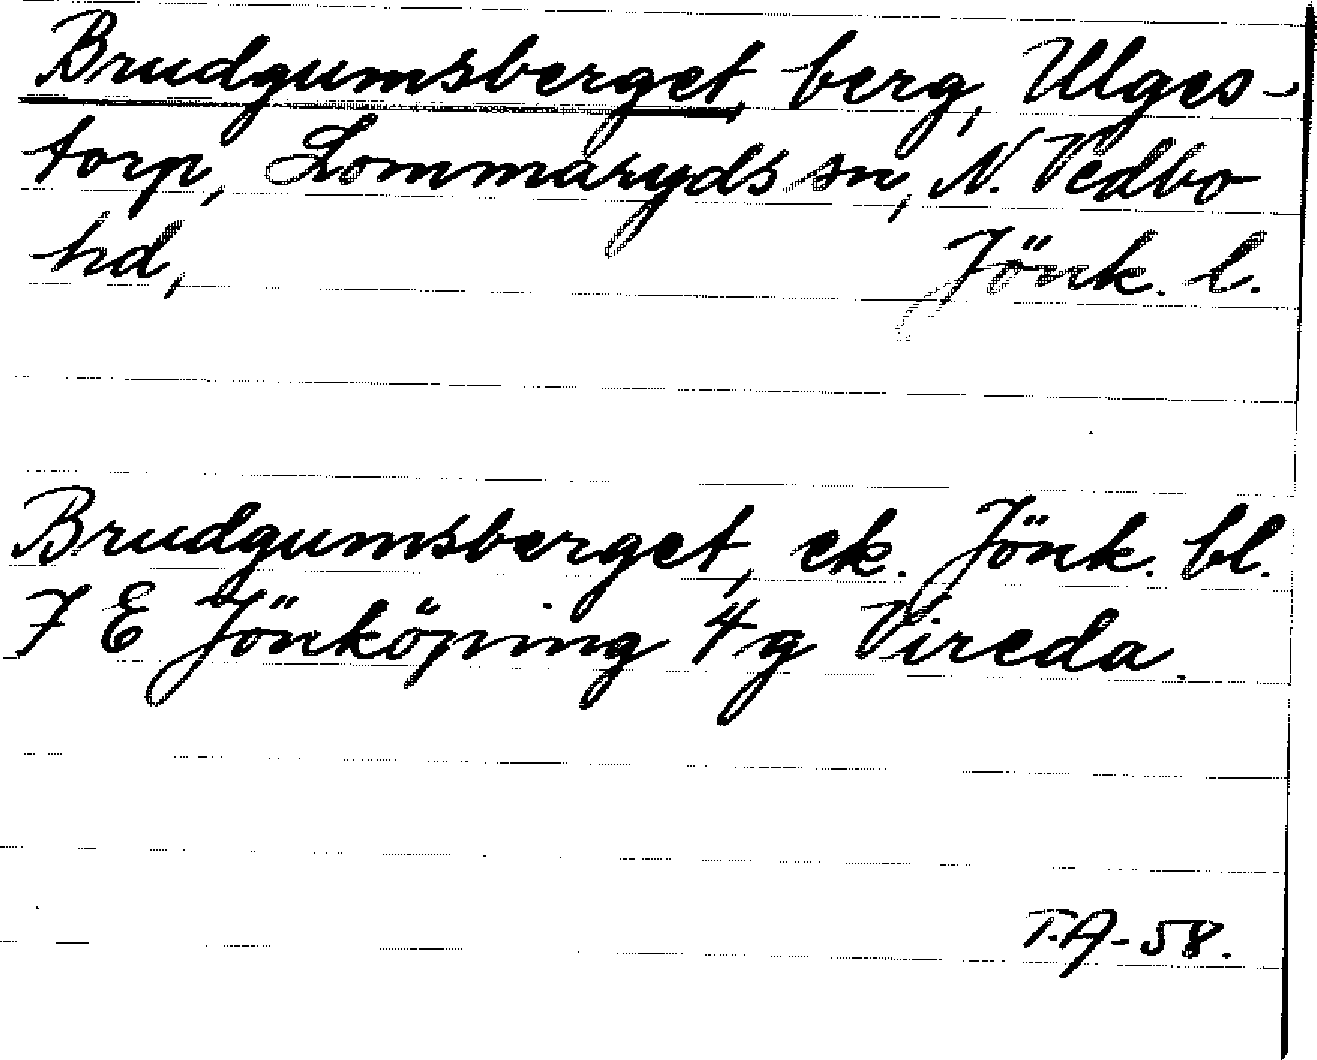 Brudgumsberget, berg, Ulges-
torp, Lommaryds sn, N. Vedbo
hd, Jönk. l.
Brudgumsberget, ek. Jönk. bl.
7 E Jönköping 4 g Vireda.
T.A-58.